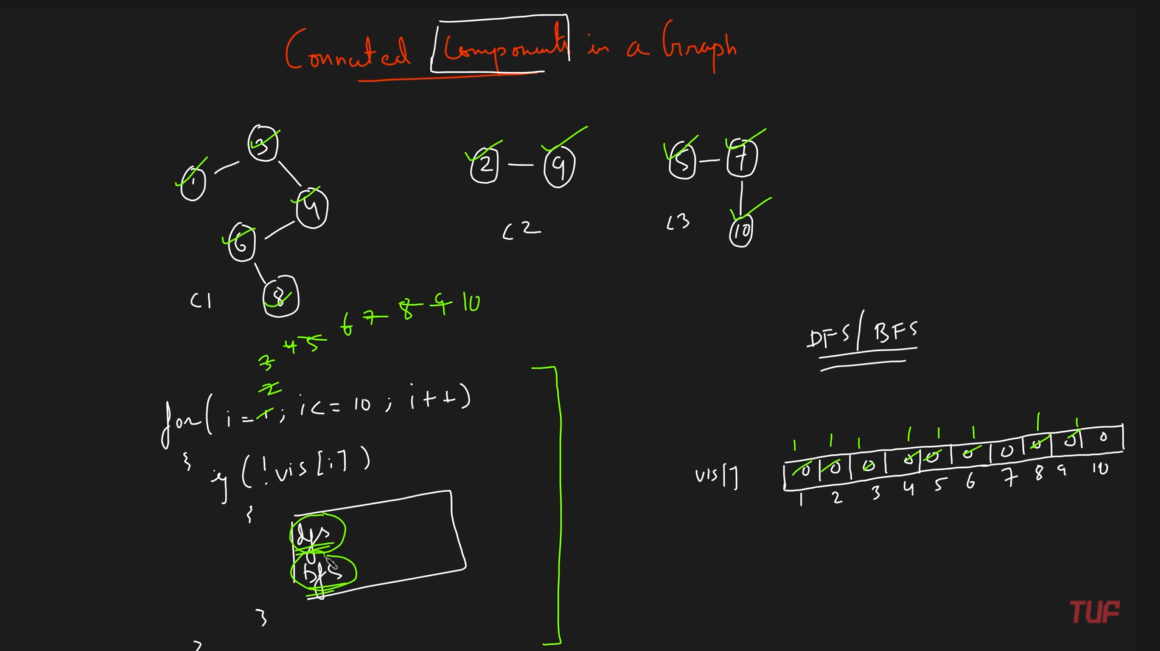 Connected Components in a Graph
1 3 4 6 8
2 9
5 7 10
C1
C2
C3
1 2 3 4 5 6 7 8 9 10
for( i=1; i<=10; i++)
{
if (!vis[i])
{
dfs
bfs
}
}
DFS/BFS
1 1 1 1 1 1 1 1
vis[] 0 0 0 0 0 0 0 0 0 0
1 2 3 4 5 6 7 8 9 10
TUF